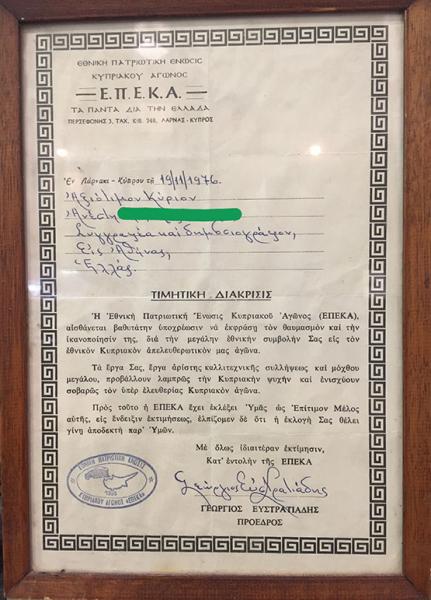 ΕΘΝΙΚΗ ΠΑΤΡΙΩΤΙΚΗ ΕΝΩΣΙΣ
ΚΥΠΡΙΑΚΟΥ ΑΓΩΝΟΣ
— Ε.Π.Ε.Κ.Α. —
ΤΑ ΠΑΝΤΑ ΔΙΑ ΤΗΝ ΕΛΛΑΔΑ
ΠΕΡΣΕΦΟΝΗΣ 3, ΤΑΧ. ΚΙΒ. 248, ΛΑΡΝΑΞ - ΚΥΠΡΟΣ
Ἐν Λάρνακι - Κύπρου τῇ 19/11/1976.
Ἀξιότιμον Κύριον
Ἀνέστη
Συγγραφέα καὶ δημοσιογράφον,
Εἰς Ἀθήνας,
Ἑλλάς.
ΤΙΜΗΤΙΚΗ ΔΙΑΚΡΙΣΙΣ
Ἡ Ἐθνική Πατριωτική Ἕνωσις Κυπριακοῦ Ἀγῶνος (ΕΠΕΚΑ),
αἰσθάνεται βαθυτάτην ὑποχρέωσιν νὰ ἐκφράσῃ τὸν θαυμασμόν καὶ τὴν
ἱκανοποίησίν της, διὰ τὴν μεγάλην ἐθνικήν συμβολήν Σας εἰς τὸν
ἐθνικόν Κυπριακόν ἀπελευθερωτικόν μας ἀγῶνα.
Τὰ ἔργα Σας, ἔργα ἀρίστης καλλιτεχνικῆς συλλήψεως καὶ μόχθου
μεγάλου, προβάλλουν λαμπρῶς τὴν Κυπριακήν ψυχήν καὶ ἐνισχύουν
σοβαρῶς τὸν ὑπὲρ ἐλευθερίας Κυπριακόν ἀγῶνα.
Πρὸς τοῦτο ἡ ΕΠΕΚΑ ἔχει ἐκλέξει Ὑμᾶς ὡς Ἐπίτιμον Μέλος
αὐτῆς, εἰς ἔνδειξιν ἐκτιμήσεως, ἐλπίζομεν δὲ ὅτι ἡ ἐκλογή Σας θέλει
γίνῃ ἀποδεκτή παρ' Ὑμῶν.
Μὲ ὅλως ἰδιαιτέραν ἐκτίμησιν,
Κατ' ἐντολήν τῆς ΕΠΕΚΑ
Γεώργιος Εὐστρατιάδης
ΓΕΩΡΓΙΟΣ ΕΥΣΤΡΑΤΙΑΔΗΣ
ΠΡΟΕΔΡΟΣ
ΕΘΝΙΚΗ ΠΑΤΡΙΩΤΙΚΗ ΕΝΩΣΙΣ
ΚΥΠΡΙΑΚΟΥ ΑΓΩΝΟΣ «ΕΠΕΚΑ»